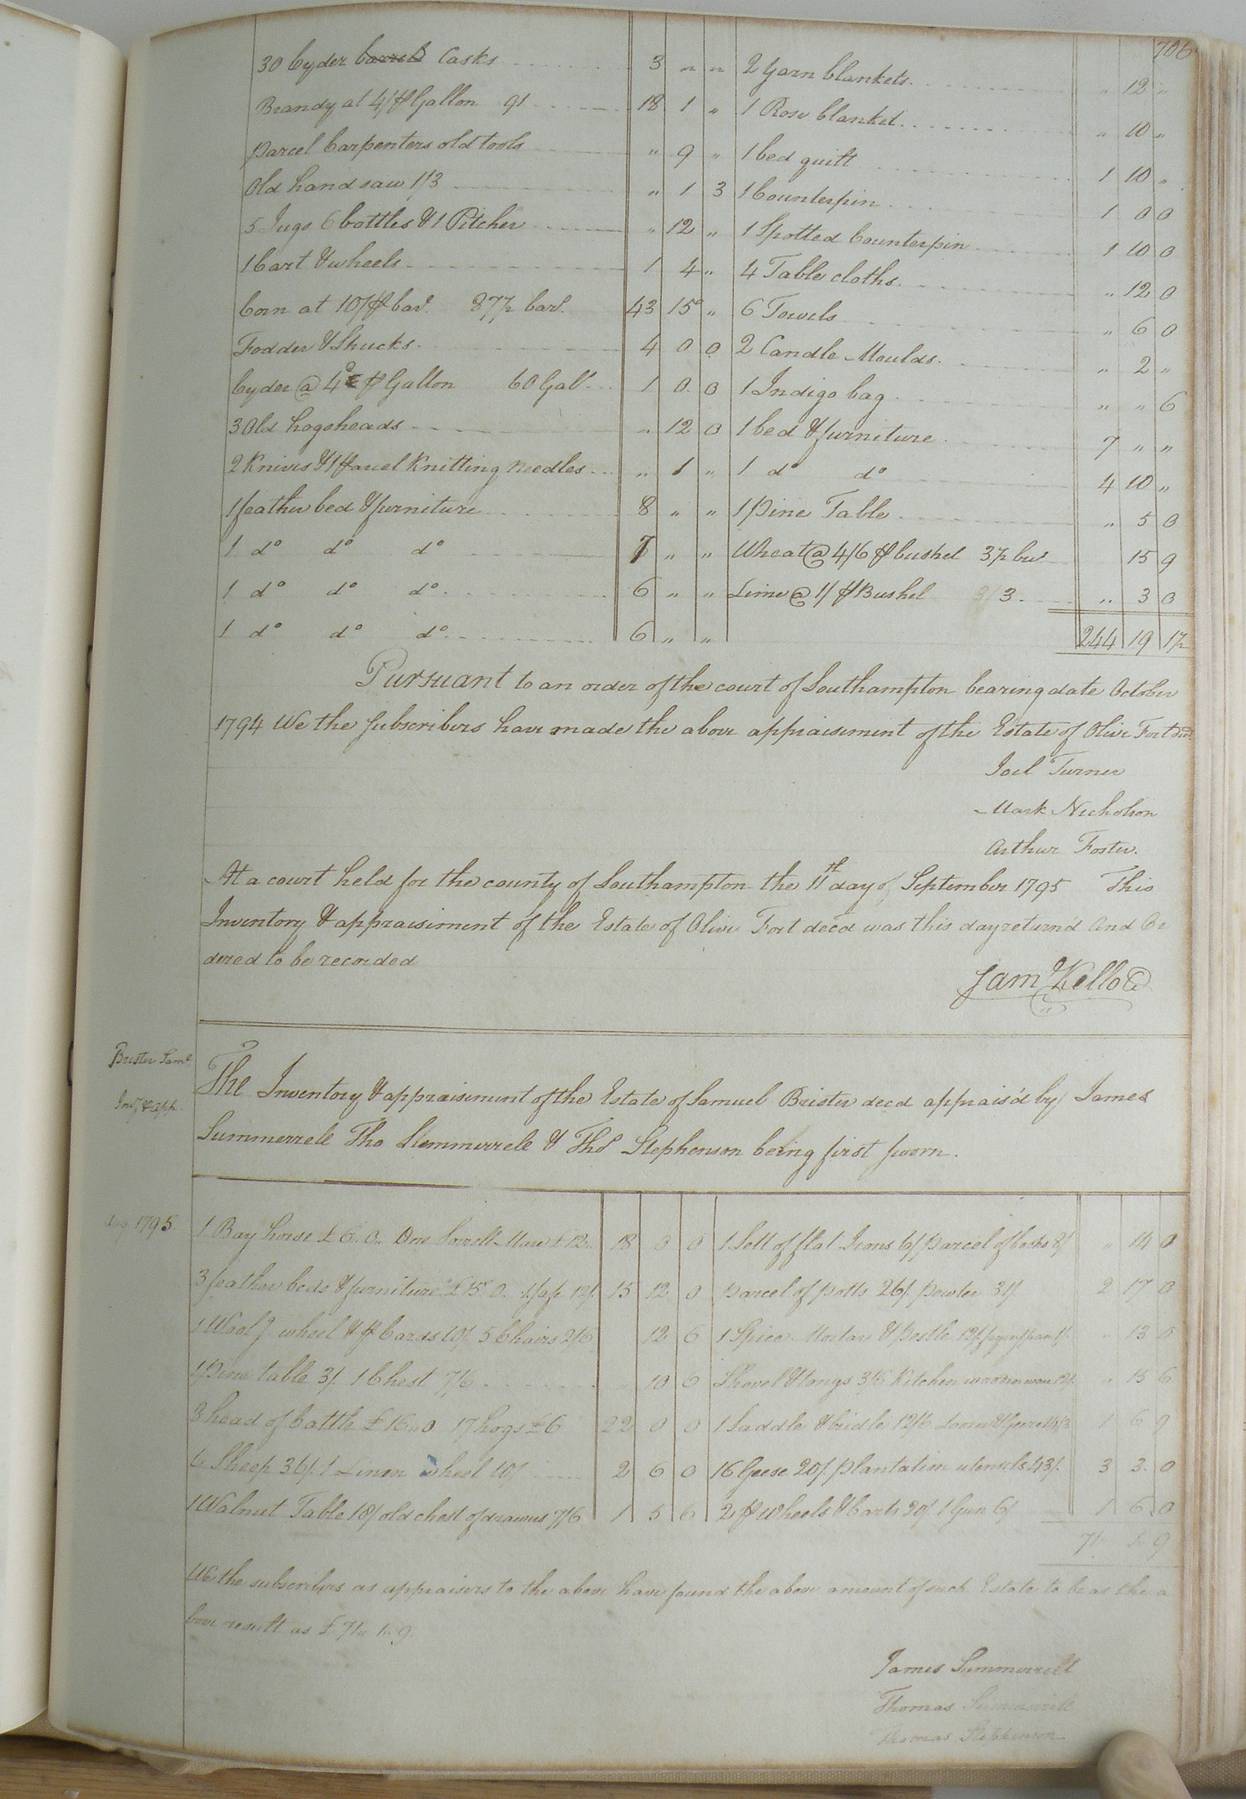 706
30 Cyder barrels Casks 3 " " 2 Yarn blankets " 12 "
Brandy at 4/ ⅌ Gallon 91 18 1 " 1 Rose blanket " 10 "
Parcel Carpenters old tools " 9 " 1 bed quilt 1 10 "
Old hand saw 1/3 " 1 3 1 Counterpin 1 0 0
5 Jugs 6 bottles & 1 Pitcher " 12 " 1 Spotted Counterpin 1 10 0
1 Cart & wheels 1 4 " 4 Table cloths " 12 0
Corn at 10/ ⅌ barl. 87½ barl. 43 15 " 6 Towels " 6 0
Fodder & Shucks 4 0 0 2 Candle Moulds " 2 "
Cyder @ 4d ⅌ Gallon 60 Gall 1 0 0 1 Indigo bag " " 6
3 Old hogsheads " 12 0 1 bed & furniture 7 " "
2 Knives & 1 parcel Knitting needles " 1 " 1 do do 4 10 "
1 feather bed & furniture 8 " " 1 Pine Table " 5 0
1 do do do 7 " " Wheat @ 4/6 ⅌ bushel 3½ bus 15 9
1 do do do 6 " " Lime @ 1/ ⅌ Bushel 3 " 3 0
1 do do do 6 " " 244 19 1½
Pursuant to an order of the court of Southampton bearing date October
1794 We the subscribers have made the above appraisiment of the Estate of Olive Fort decd
Joel Turner
Mark Nicholson
Arthur Foster
At a court held for the county of Southampton the 11th day of September 1795 This
Inventory & appraisiment of the Estate of Olive Fort decd was this day return'd And Or
dered to be recorded
Saml Kello C
Brister Saml
Invy & app.
The Inventory & appraisiment of the Estate of Samuel Brister decd apprais'd by James
Summerrele Tho Summerrele & Thos Stephenson being first sworn.
Aug 1795
1 Bay horse £6.0. One Sorrell Mare £12 18 0 0 1 Sett of flat Irons 6/ Parcel of casks 8/ " 14 0
3 feather beds & furniture £15.0. 12/ 15 12 0 Parcel of potts 26/ Pewter 31/ 2 17 0
1 Wool wheel & ⅌ Cards 10/ 5 Chairs 2/6 12 6 1 Spice Mortar & Pestle 12/ frying pan 1/ " 13 0
1 Pine table 3/ 1 Chest 7/6 " 10 6 Shovel & tongs 3/6 Kitchen wooden ware 12/ " 15 6
8 head of Cattle £16 " 0 17 hogs £6 22 0 0 1 Saddle & bridle 12/6 1 6 9
6 Sheep 36/ 1 Linen wheel 10/ 2 6 0 16 Geese 20/ plantation utensils 43/ 3 3 0
1 Walnut Table 18/ old chest of drawers 7/6 1 5 6 2 ⅌ Wheels & Carts 20/ 1 Gun 6/ 1 6 0
71 1 9
We the subscribers as appraisers to the above have found the above amount of such Estate to be as the a
bove result as £71 " 1 " 9
James Summerrell
Thomas Summerrell
Thomas Stephenson